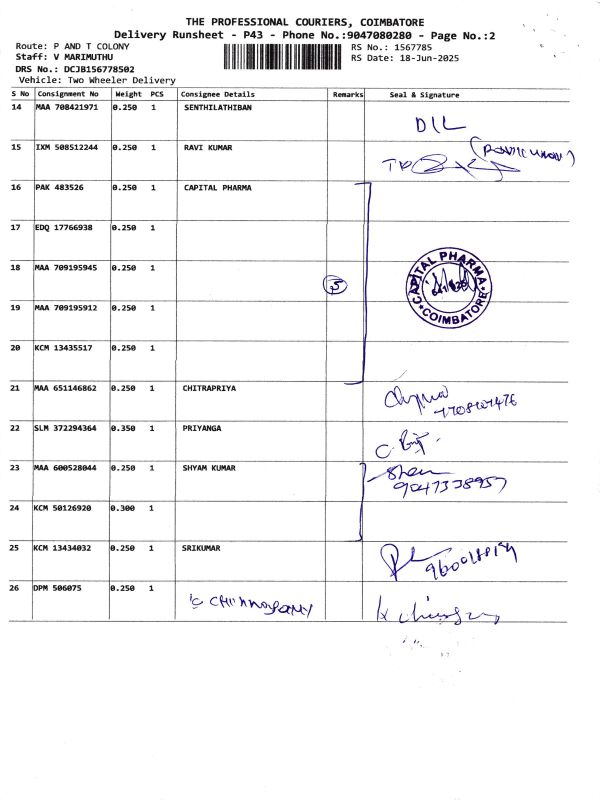 THE PROFESSIONAL COURIERS, COIMBATORE
Delivery Runsheet - P43 - Phone No.:9047080280 - Page No.:2
Route: P AND T COLONY
RS No.: 1567785
Staff: V MARIMUTHU
RS Date: 18-Jun-2025
DRS No.: DCJB156778502
Vehicle: Two Wheeler Delivery
S No Consignment No Weight PCS Consignee Details Remarks Seal & Signature
14 MAA 708421971 0.250 1 SENTHILATHIBAN
DIL
15 IXM 508512244 0.250 1 RAVI KUMAR
16 PAK 483526 0.250 1 CAPITAL PHARMA
17 EDQ 17766938 0.250 1
18 MAA 709195945 0.250 1
5
CAPITAL PHARMA
COIMBATORE
19 MAA 709195912 0.250 1
20 KCM 13435517 0.250 1
21 MAA 651146862 0.250 1 CHITRAPRIYA
22 SLM 372294364 0.350 1 PRIYANGA
23 MAA 600528044 0.250 1 SHYAM KUMAR
9047338957
24 KCM 50126920 0.300 1
25 KCM 13434032 0.250 1 SRIKUMAR
26 DPM 506075 0.250 1